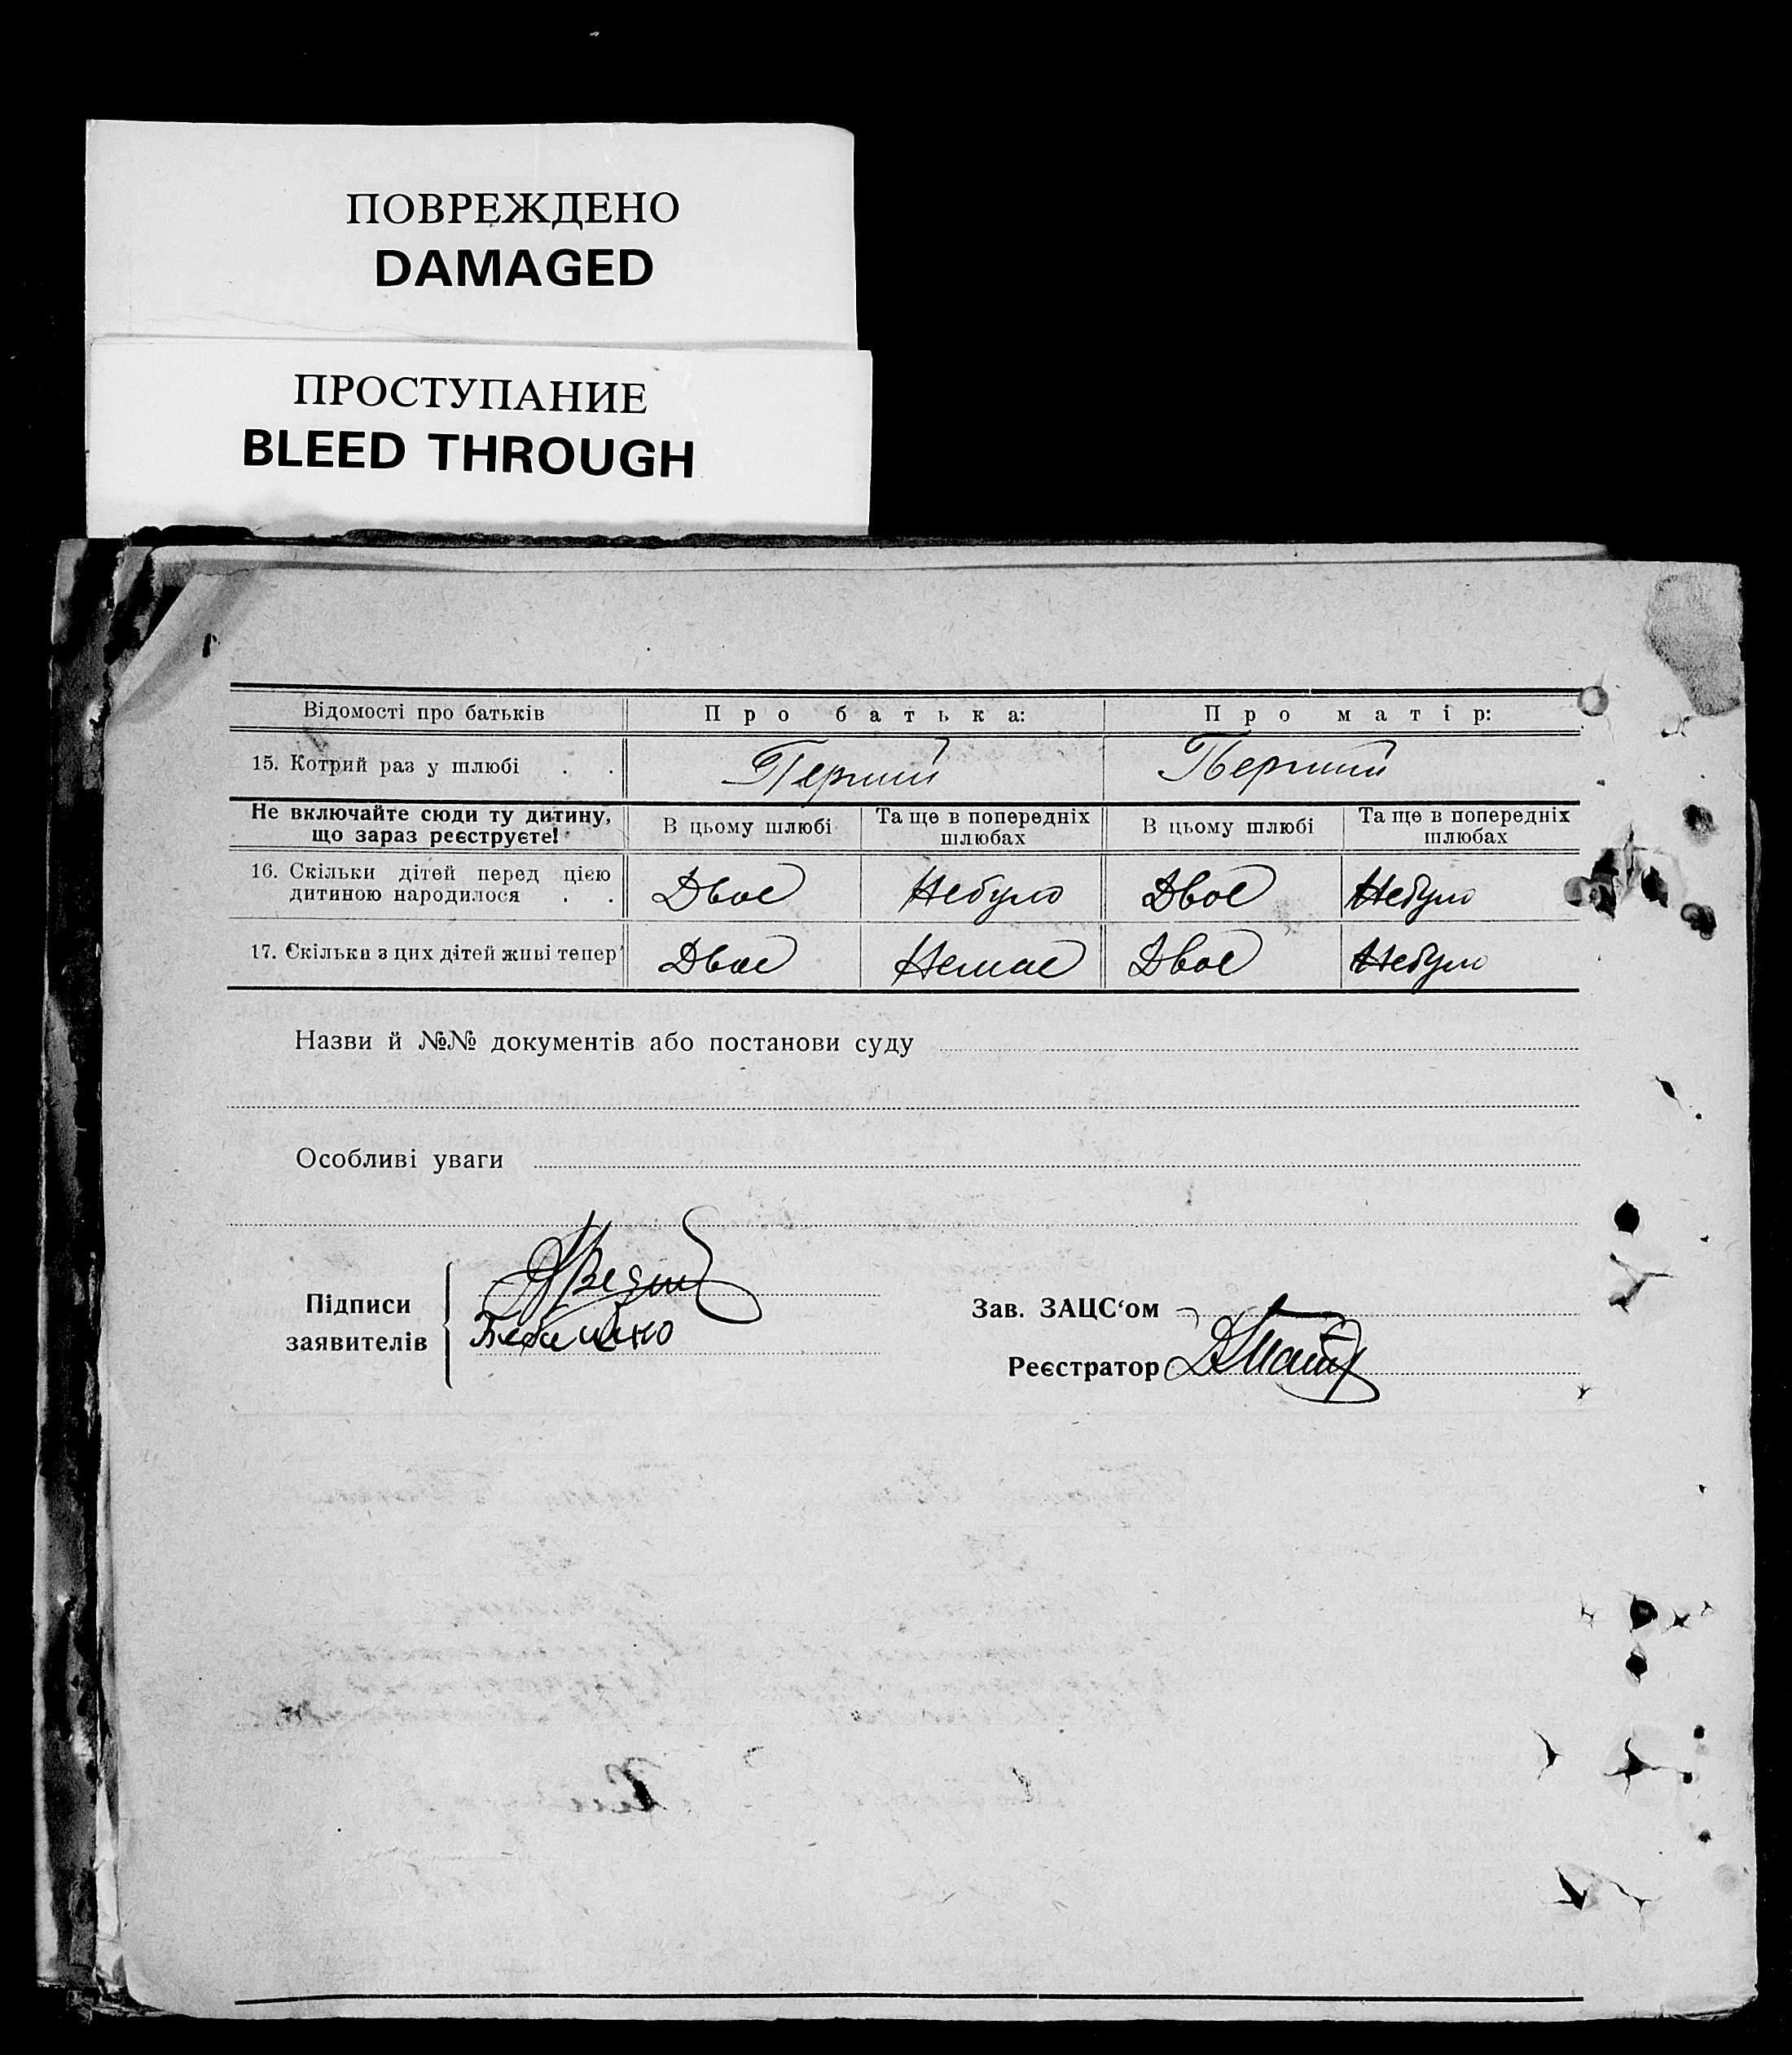 ПОВРЕЖДЕНО
DAMAGED
ПРОСТУПАНИЕ
BLEED THROUGH
Відомості про батьків Про батька: Про матір:
15. Котрий раз у шлюбі . . Перший Перший
Не включайте сюди ту дитину, що зараз реєструєте! В цьому шлюбі Та ще в попередніх шлюбах В цьому шлюбі Та ще в попередніх шлюбах
16. Скільки дітей перед цією дитиною народилося . . Двоє Небуло Двоє Небуло
17. Скілька з цих дітей живі тепер Двоє Немає Двоє Небуло
Назви й №№ документів або постанови суду
Особливі уваги
Підписи
заявителів
Зав. ЗАЦС'ом
Реєстратор